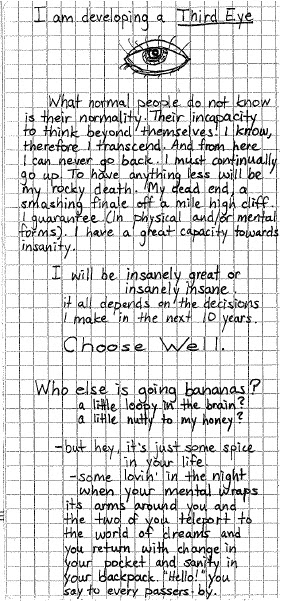 I am developing a Third Eye
What normal people do not know
is their normality. Their incapacity
to think beyond themselves! I know,
therefore I transcend. And from here
I can never go back. I must continually
go up. To have anything less will be
my rocky death. My dead end, a
smashing finale off a mile high cliff.
I guarantee (In physical and/or mental
forms). I have a great capacity towards
insanity.
I will be insanely great or
insanely insane.
it all depends on the decisions
I make in the next 10 years.
Choose Well.
Who else is going bananas?
a little loopy in the brain?
a little nutty to my honey?
-but hey, it's just some spice
in your life.
-some lovin' in the night
when your mental wraps
its arms around you and
the two of you teleport to
the world of dreams and
you return with change in
your pocket and sanity in
your backpack. "Hello!" you
say to every passers by.